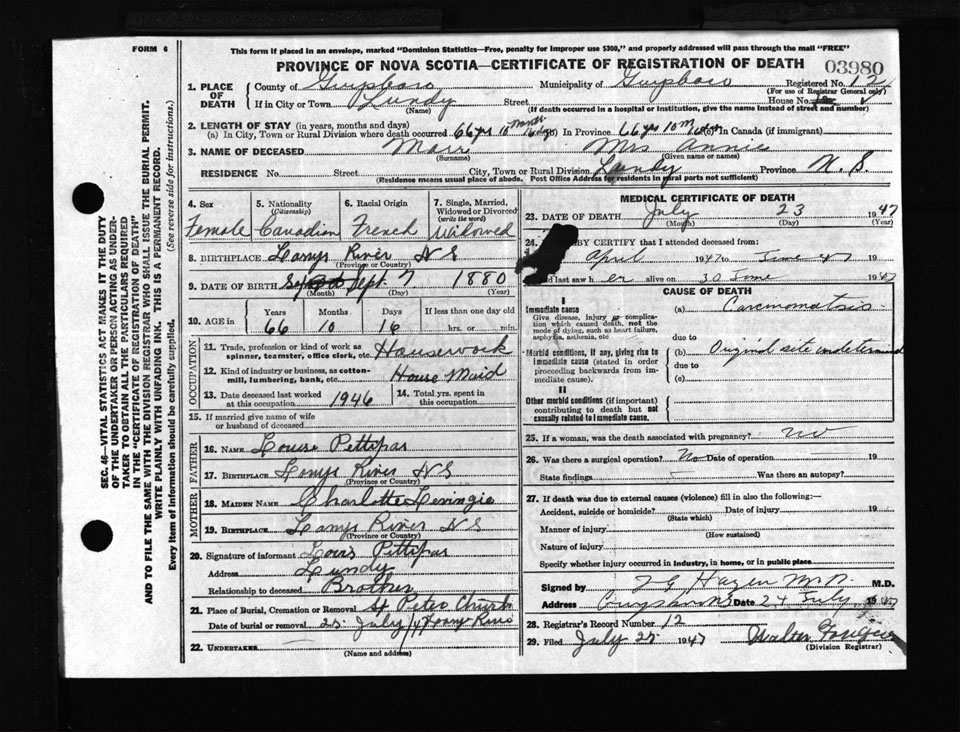 FORM 6
This form if placed in an envelope, marked "Dominion Statistics—Free, penalty for improper use $300," and properly addressed will pass through the mail "FREE"
PROVINCE OF NOVA SCOTIA—CERTIFICATE OF REGISTRATION OF DEATH
03980
SEC. 46—VITAL STATISTICS ACT MAKES IT THE DUTY
OF THE UNDERTAKER OR PERSON ACTING AS UNDER-
TAKER TO OBTAIN ALL THE PARTICULARS REQUIRED
IN THE "CERTIFICATE OF REGISTRATION OF DEATH"
AND TO FILE THE SAME WITH THE DIVISION REGISTRAR WHO SHALL ISSUE THE BURIAL PERMIT.
WRITE PLAINLY WITH UNFADING INK. THIS IS A PERMANENT RECORD.
Every item of information should be carefully supplied. (See reverse side for instructions.)
1. PLACE OF DEATH
County of Guysboro Municipality of Guysboro Registered No. 12
(For use of Registrar General only)
If in City or Town Lundy Street House No.
(Name) (If death occurred in a hospital or institution, give the name instead of street and number)
2. LENGTH OF STAY (in years, months and days)
(a) In City, Town or Rural Division where death occurred 66 yrs 10 month 16 dys (b) In Province 66 yrs 10 m (c) In Canada (if immigrant)
3. NAME OF DECEASED Marr Mrs Annie
(Surname) (Given name or names)
RESIDENCE No. Street City, Town or Rural Division Lundy Province N.S.
(Residence means usual place of abode. Post Office Address for residents in rural parts not sufficient)
4. Sex
Female
5. Nationality
(Citizenship)
Canadian
6. Racial Origin
French
7. Single, Married, Widowed or Divorced
(write the word)
Widowed
8. BIRTHPLACE Larrys River N S
(Province or Country)
9. DATE OF BIRTH Sept. 7 1880
(Month) (Day) (Year)
10. AGE in
Years Months Days If less than one day old
66 10 16 hrs. or min.
OCCUPATION
11. Trade, profession or kind of work as spinner, teamster, office clerk, etc. Housework
12. Kind of industry or business, as cotton-mill, lumbering, bank, etc. House Maid
13. Date deceased last worked at this occupation 1946
14. Total yrs. spent in this occupation
15. If married give name of wife or husband of deceased
FATHER
16. NAME Louise Pettipas
17. BIRTHPLACE Larrys River N S
(Province or Country)
MOTHER
18. MAIDEN NAME Charlotte Levingie
19. BIRTHPLACE Larrys River N S
(Province or Country)
20. Signature of informant Louis Pettipas
Address Lundy
Relationship to deceased Brother
21. Place of Burial, Cremation or Removal St Peters Church
Date of burial or removal 25 July/47 Larrys River
22. UNDERTAKER
(Name and address)
MEDICAL CERTIFICATE OF DEATH
23. DATE OF DEATH July 23 1947
(Month) (Day) (Year)
24. BY CERTIFY that I attended deceased from:
April 1947 to June 47 19
last saw her alive on 30 June 1947
CAUSE OF DEATH
I
Immediate cause
Give disease, injury or complication which caused death, not the mode of dying, such as heart failure, asphyxia, asthenia, etc
(a) Carcinomatosis
due to
Morbid conditions, if any, giving rise to immediate cause (stated in order proceeding backwards from immediate cause).
(b) Original site undetermined
due to
(c)
II
Other morbid conditions (if important) contributing to death but not causally related to immediate cause.
25. If a woman, was the death associated with pregnancy? no
26. Was there a surgical operation? No Date of operation 19
State findings Was there an autopsy?
27. If death was due to external causes (violence) fill in also the following:—
Accident, suicide or homicide? Date of injury 19
(State which)
Manner of injury
(How sustained)
Nature of injury
Specify whether injury occurred in industry, in home, or in public place
Signed by M.D.
Address Date 24 July 1947
28. Registrar's Record Number 12
29. Filed July 25 1947 Walter
(Division Registrar)